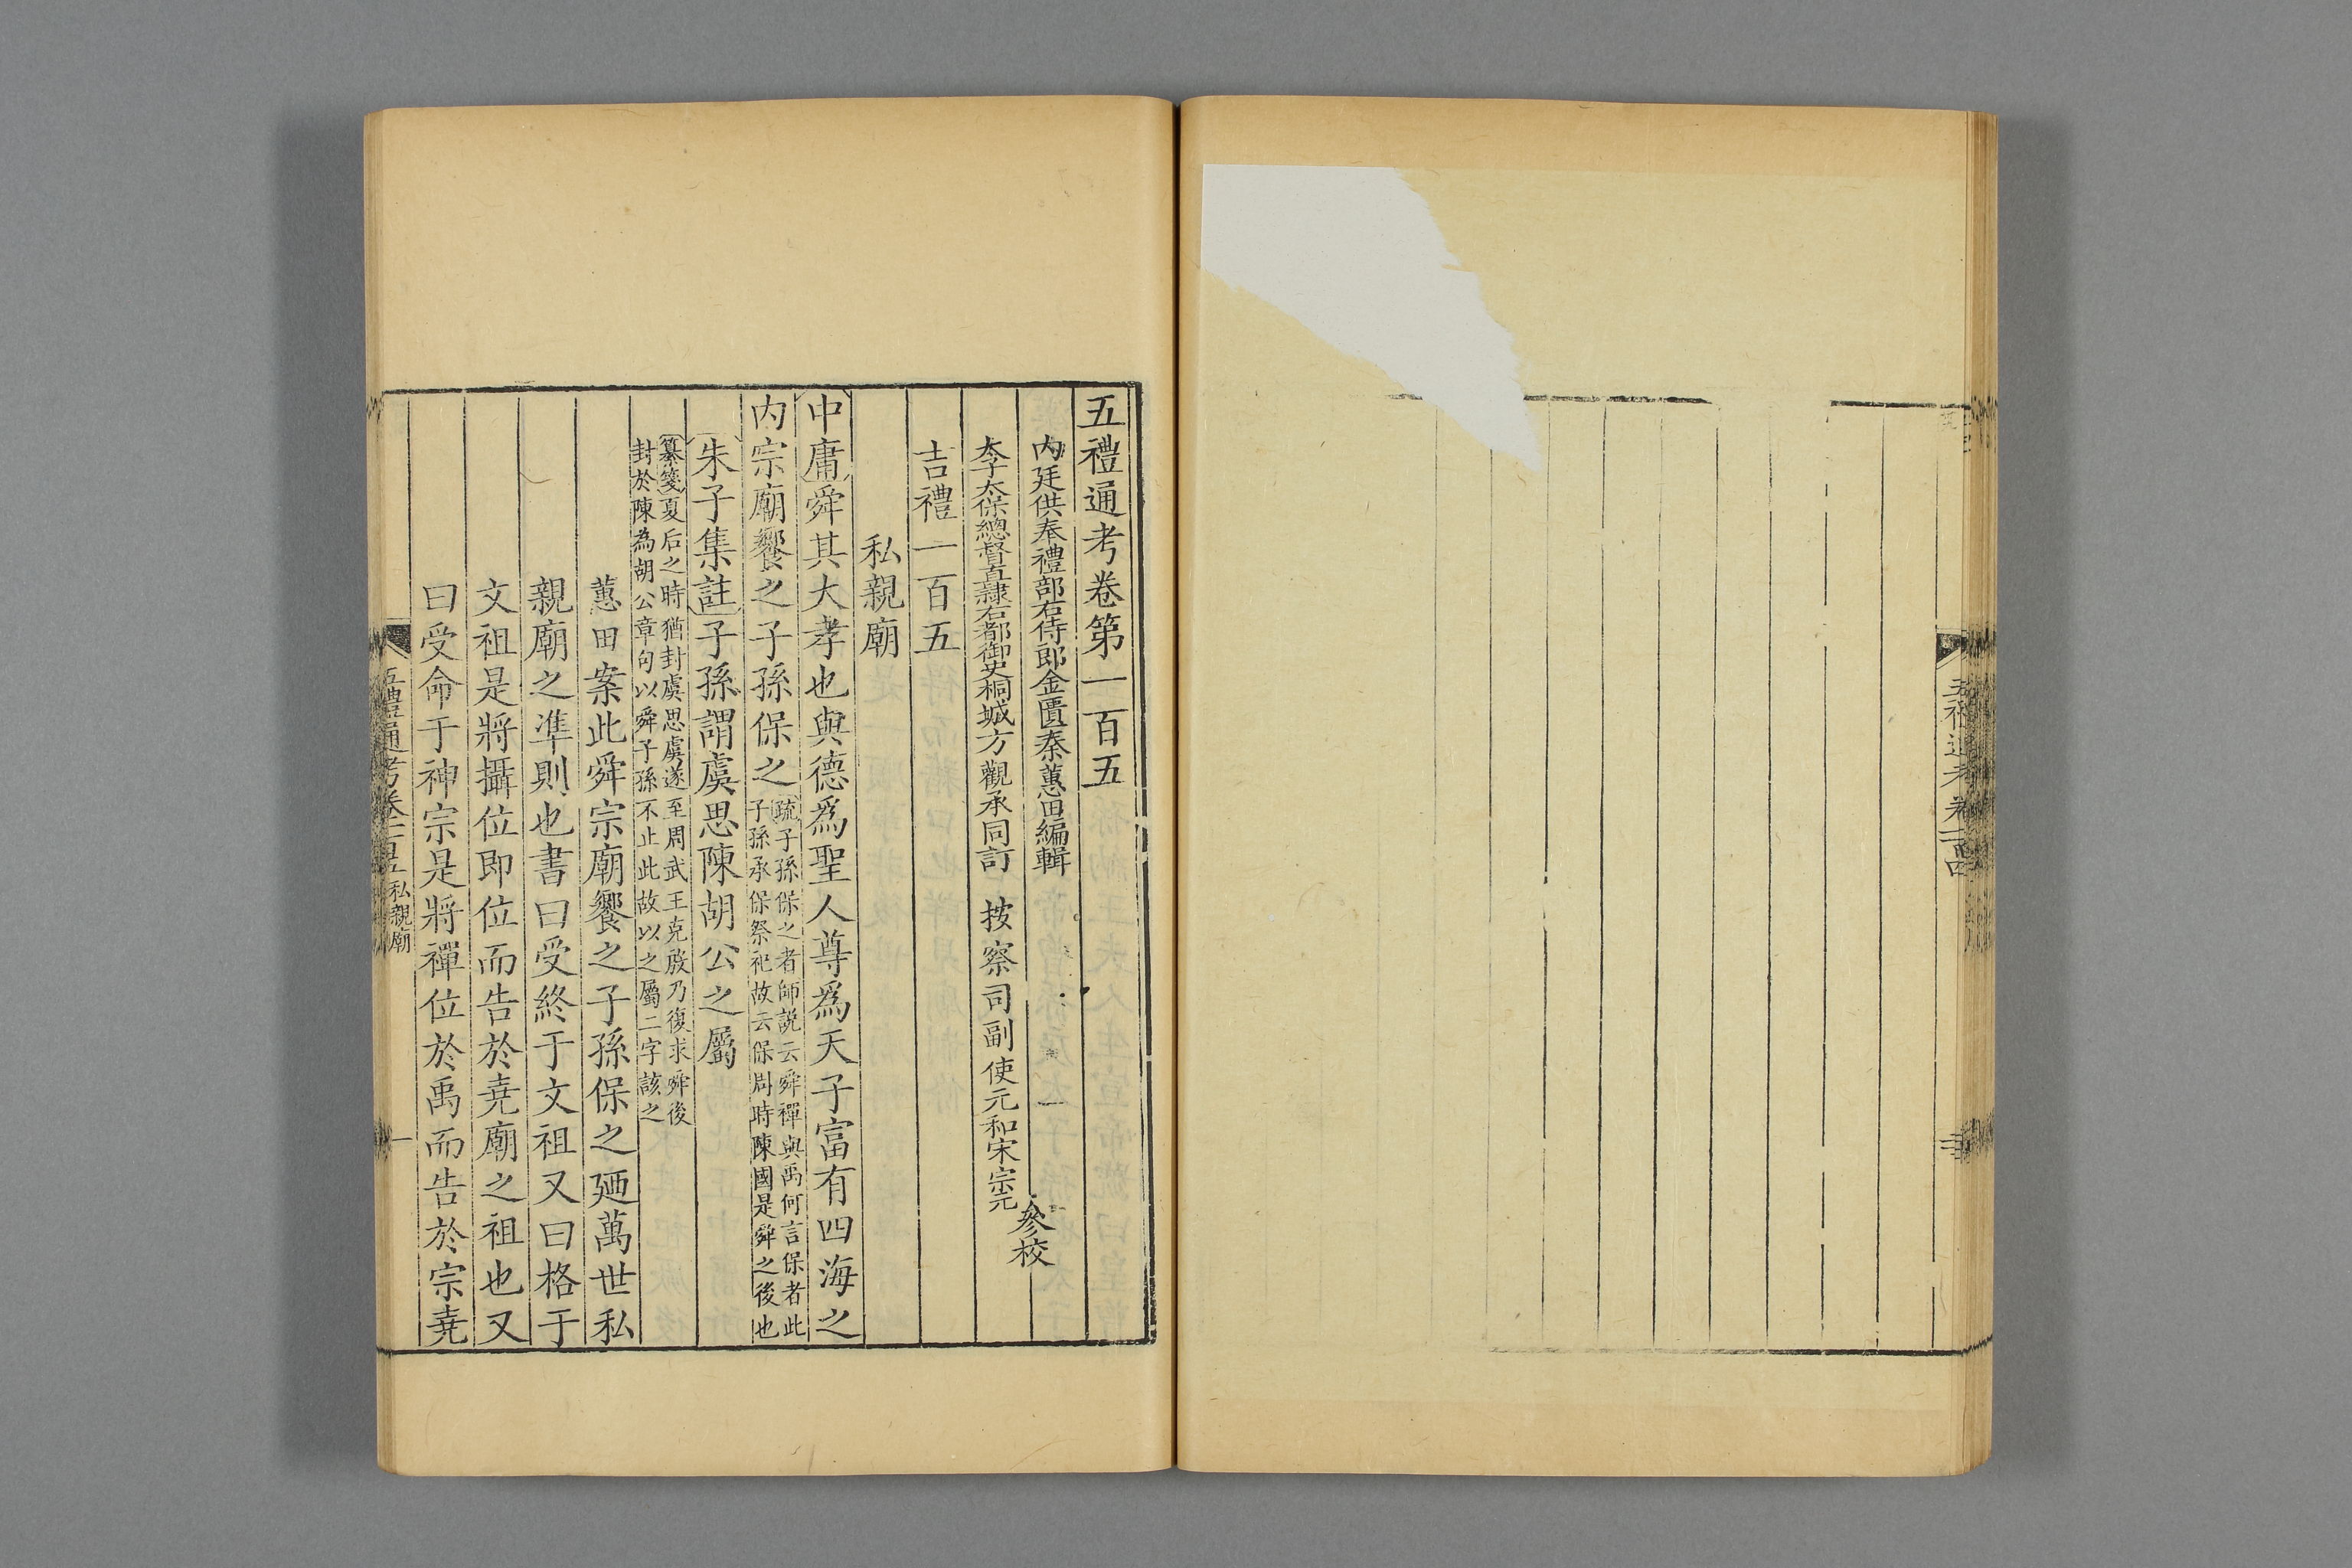 五禮通考卷一百四
五禮通考卷第一百五
内廷供奉禮部右侍郎金匱秦蕙田編輯
太子太保總督直隸右都御史桐城方觀承同訂 按察司副使元和宋宗元
參校
吉禮一百五
私親廟
中庸舜其大孝也與德爲聖人尊爲天子富有四海之
内宗廟饗之子孫保之
疏子孫保之者師説云舜禪與禹何言保者此
子孫承保祭祀故云保周時陳國是舜之後也
朱子集註子孫謂虞思陳胡公之屬
纂箋夏后之時猶封虞思虞遂至周武王克殷乃復求舜後
封於陳為胡公章句以舜子孫不止此故以之屬二字該之
蕙田案此舜宗廟饗之子孫保之廼萬世私
親廟之準則也書曰受終于文祖又曰格于
文祖是將攝位即位而告於堯廟之祖也又
曰受命于神宗是將禪位於禹而告於宗堯
五禮通考卷一百五 私親廟 一